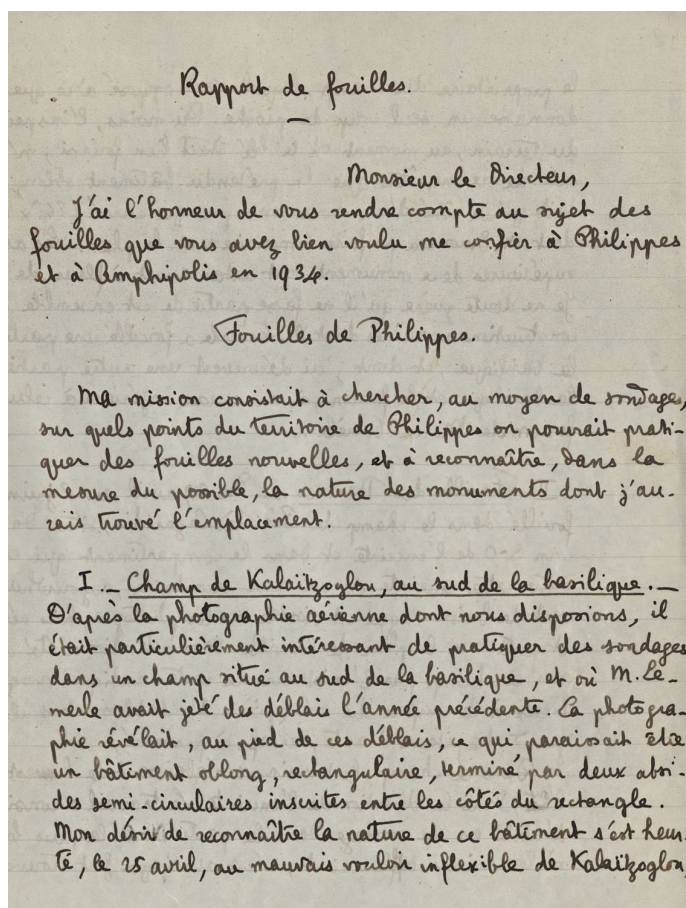 Rapport de fouilles.
Monsieur le Directeur,
J'ai l'honneur de vous rendre compte au sujet des
fouilles que vous avez bien voulu me confier à Philippes
et à Amphipolis en 1934.
Fouilles de Philippes.
Ma mission consistait à chercher, au moyen de sondages,
sur quels points du territoire de Philippes on pourrait prati-
quer des fouilles nouvelles, et à reconnaître, dans la
mesure du possible, la nature des monuments dont j'au-
rais trouvé l'emplacement.
I._ Champ de Kalaïtzoglou, au sud de la basilique._
D'après la photographie aérienne dont nous disposions, il
était particulièrement intéressant de pratiquer des sondages
dans un champ situé au sud de la basilique, et où M. Le-
merle avait jeté des déblais l'année précédente. La photogra-
phie révélait, au pied de ces déblais, ce qui paraissait être
un bâtiment oblong, rectangulaire, terminé par deux absi-
des semi-circulaires inscrites entre les côtés du rectangle.
Mon désir de reconnaître la nature de ce bâtiment s'est heur-
té, le 25 avril, au mauvais vouloir inflexible de Kalaïtzoglou,